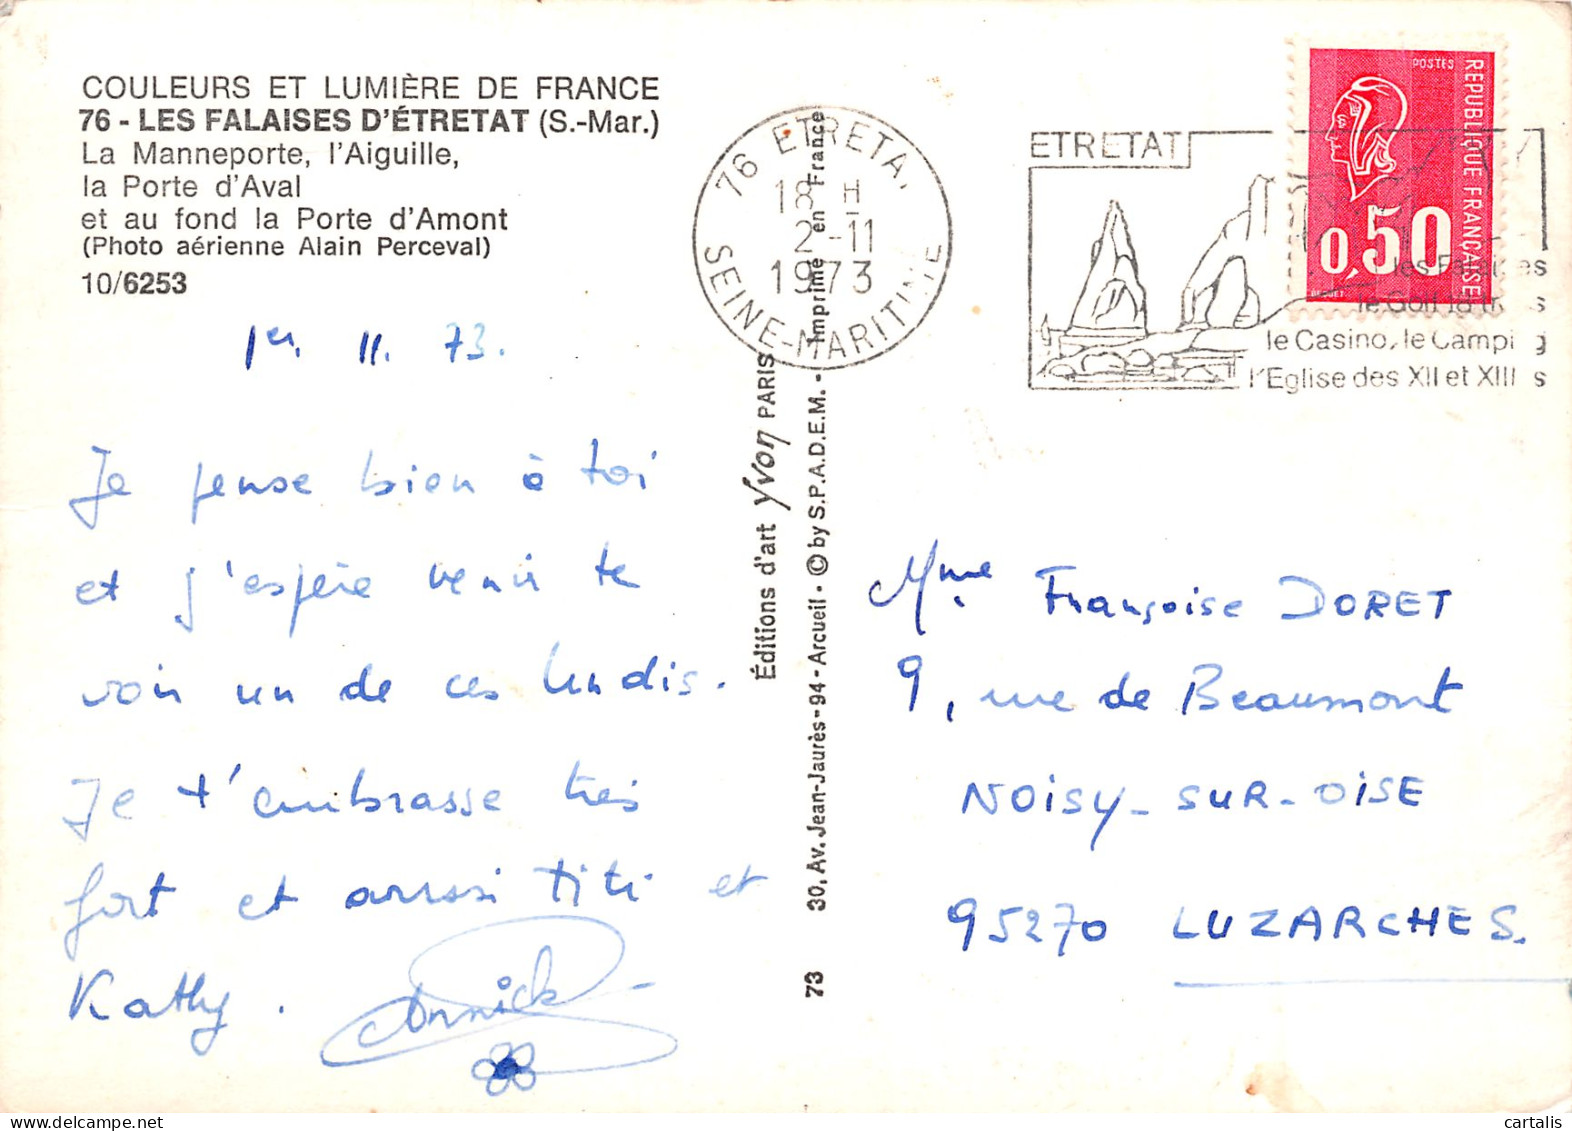 COULEURS ET LUMIÈRE DE FRANCE
76 - LES FALAISES D'ÉTRETAT (S.-Mar.)
La Manneporte, l'Aiguille,
la Porte d'Aval
et au fond la Porte d'Amont
(Photo aérienne Alain Perceval)
10/6253
1er. 11. 73.
Je pense bien à toi
et j'espère venir te
voir un de ces lundis.
Je t'embrasse très
fort et aussi Titi et
Kathy.
Annick
Éditions d'art Yvon PARIS
30, Av. Jean-Jaurès - 94 - Arcueil • © by S.P.A.D.E.M. - Imprimé en France
73
76 ETRETA
18 H
2-11
1973
SEINE-MARITIME
ETRETAT
les Falaises
le Golf
le Casino, le Camping
l'Eglise des XII et XIII s
POSTES
REPUBLIQUE FRANÇAISE
0,50
BEQUET
Mme. Françoise DORET
9, rue de Beaumont
NOISY-SUR-OISE
95270 LUZARCHES.
cartalis